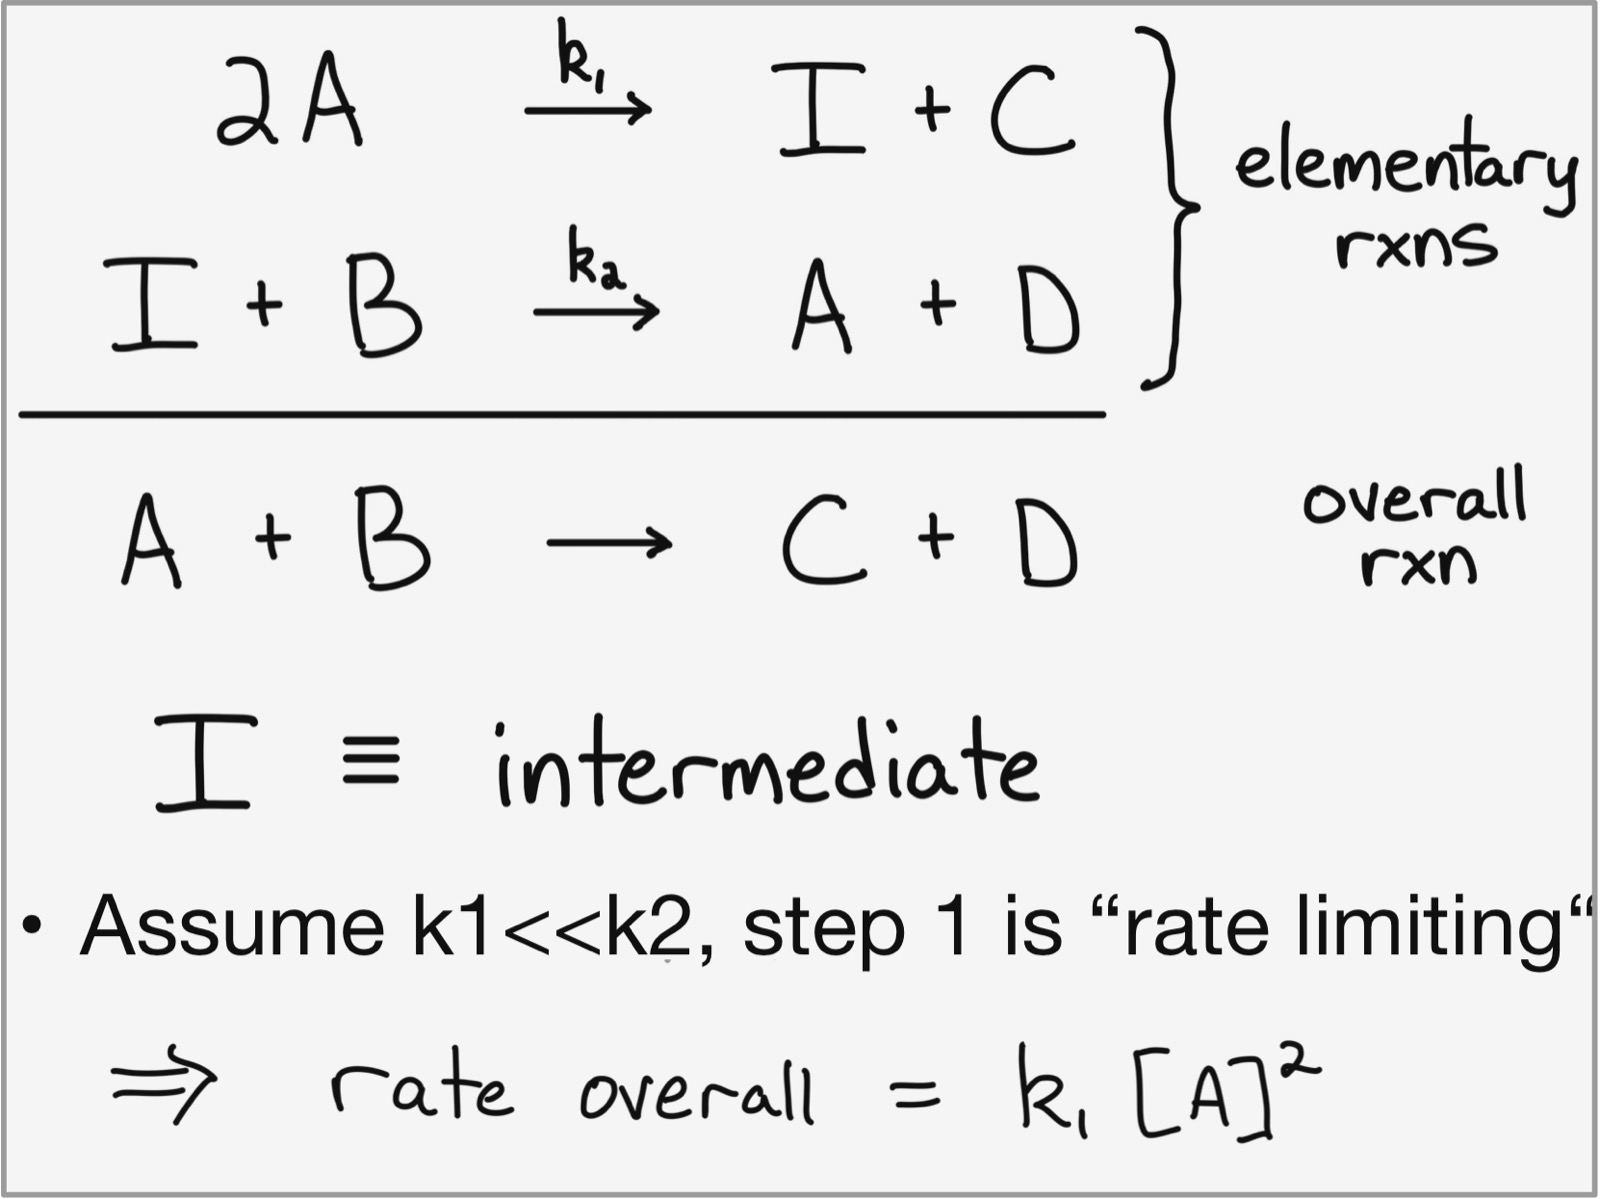 2A k₁ → I + C
elementary
I + B k₂ → A + D
rxns
A + B → C + D
overall
rxn
I ≡ intermediate
• Assume k1<<k2, step 1 is “rate limiting“
⇒ rate overall = k₁ [A]²